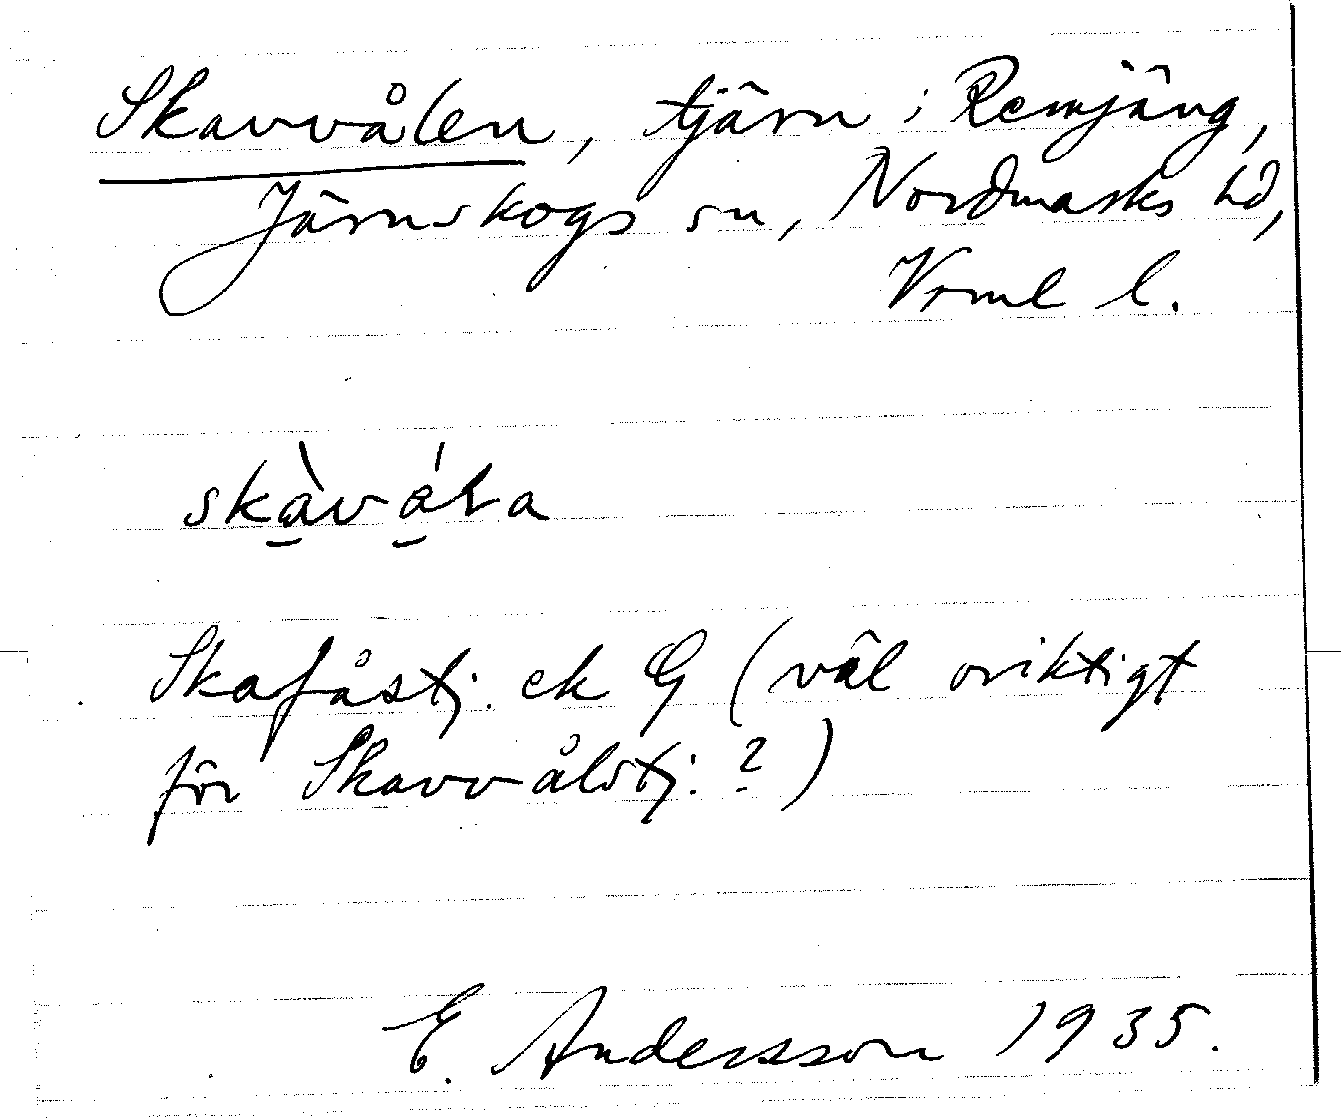 Skavvålen, tjärn i Remjäng,
Järnskogs sn, Nordmarks hd,
Vrml l.
Skafåstj. ek G (väl oriktigt
för Skavvålstj. ?)
E. Andersson 1935.